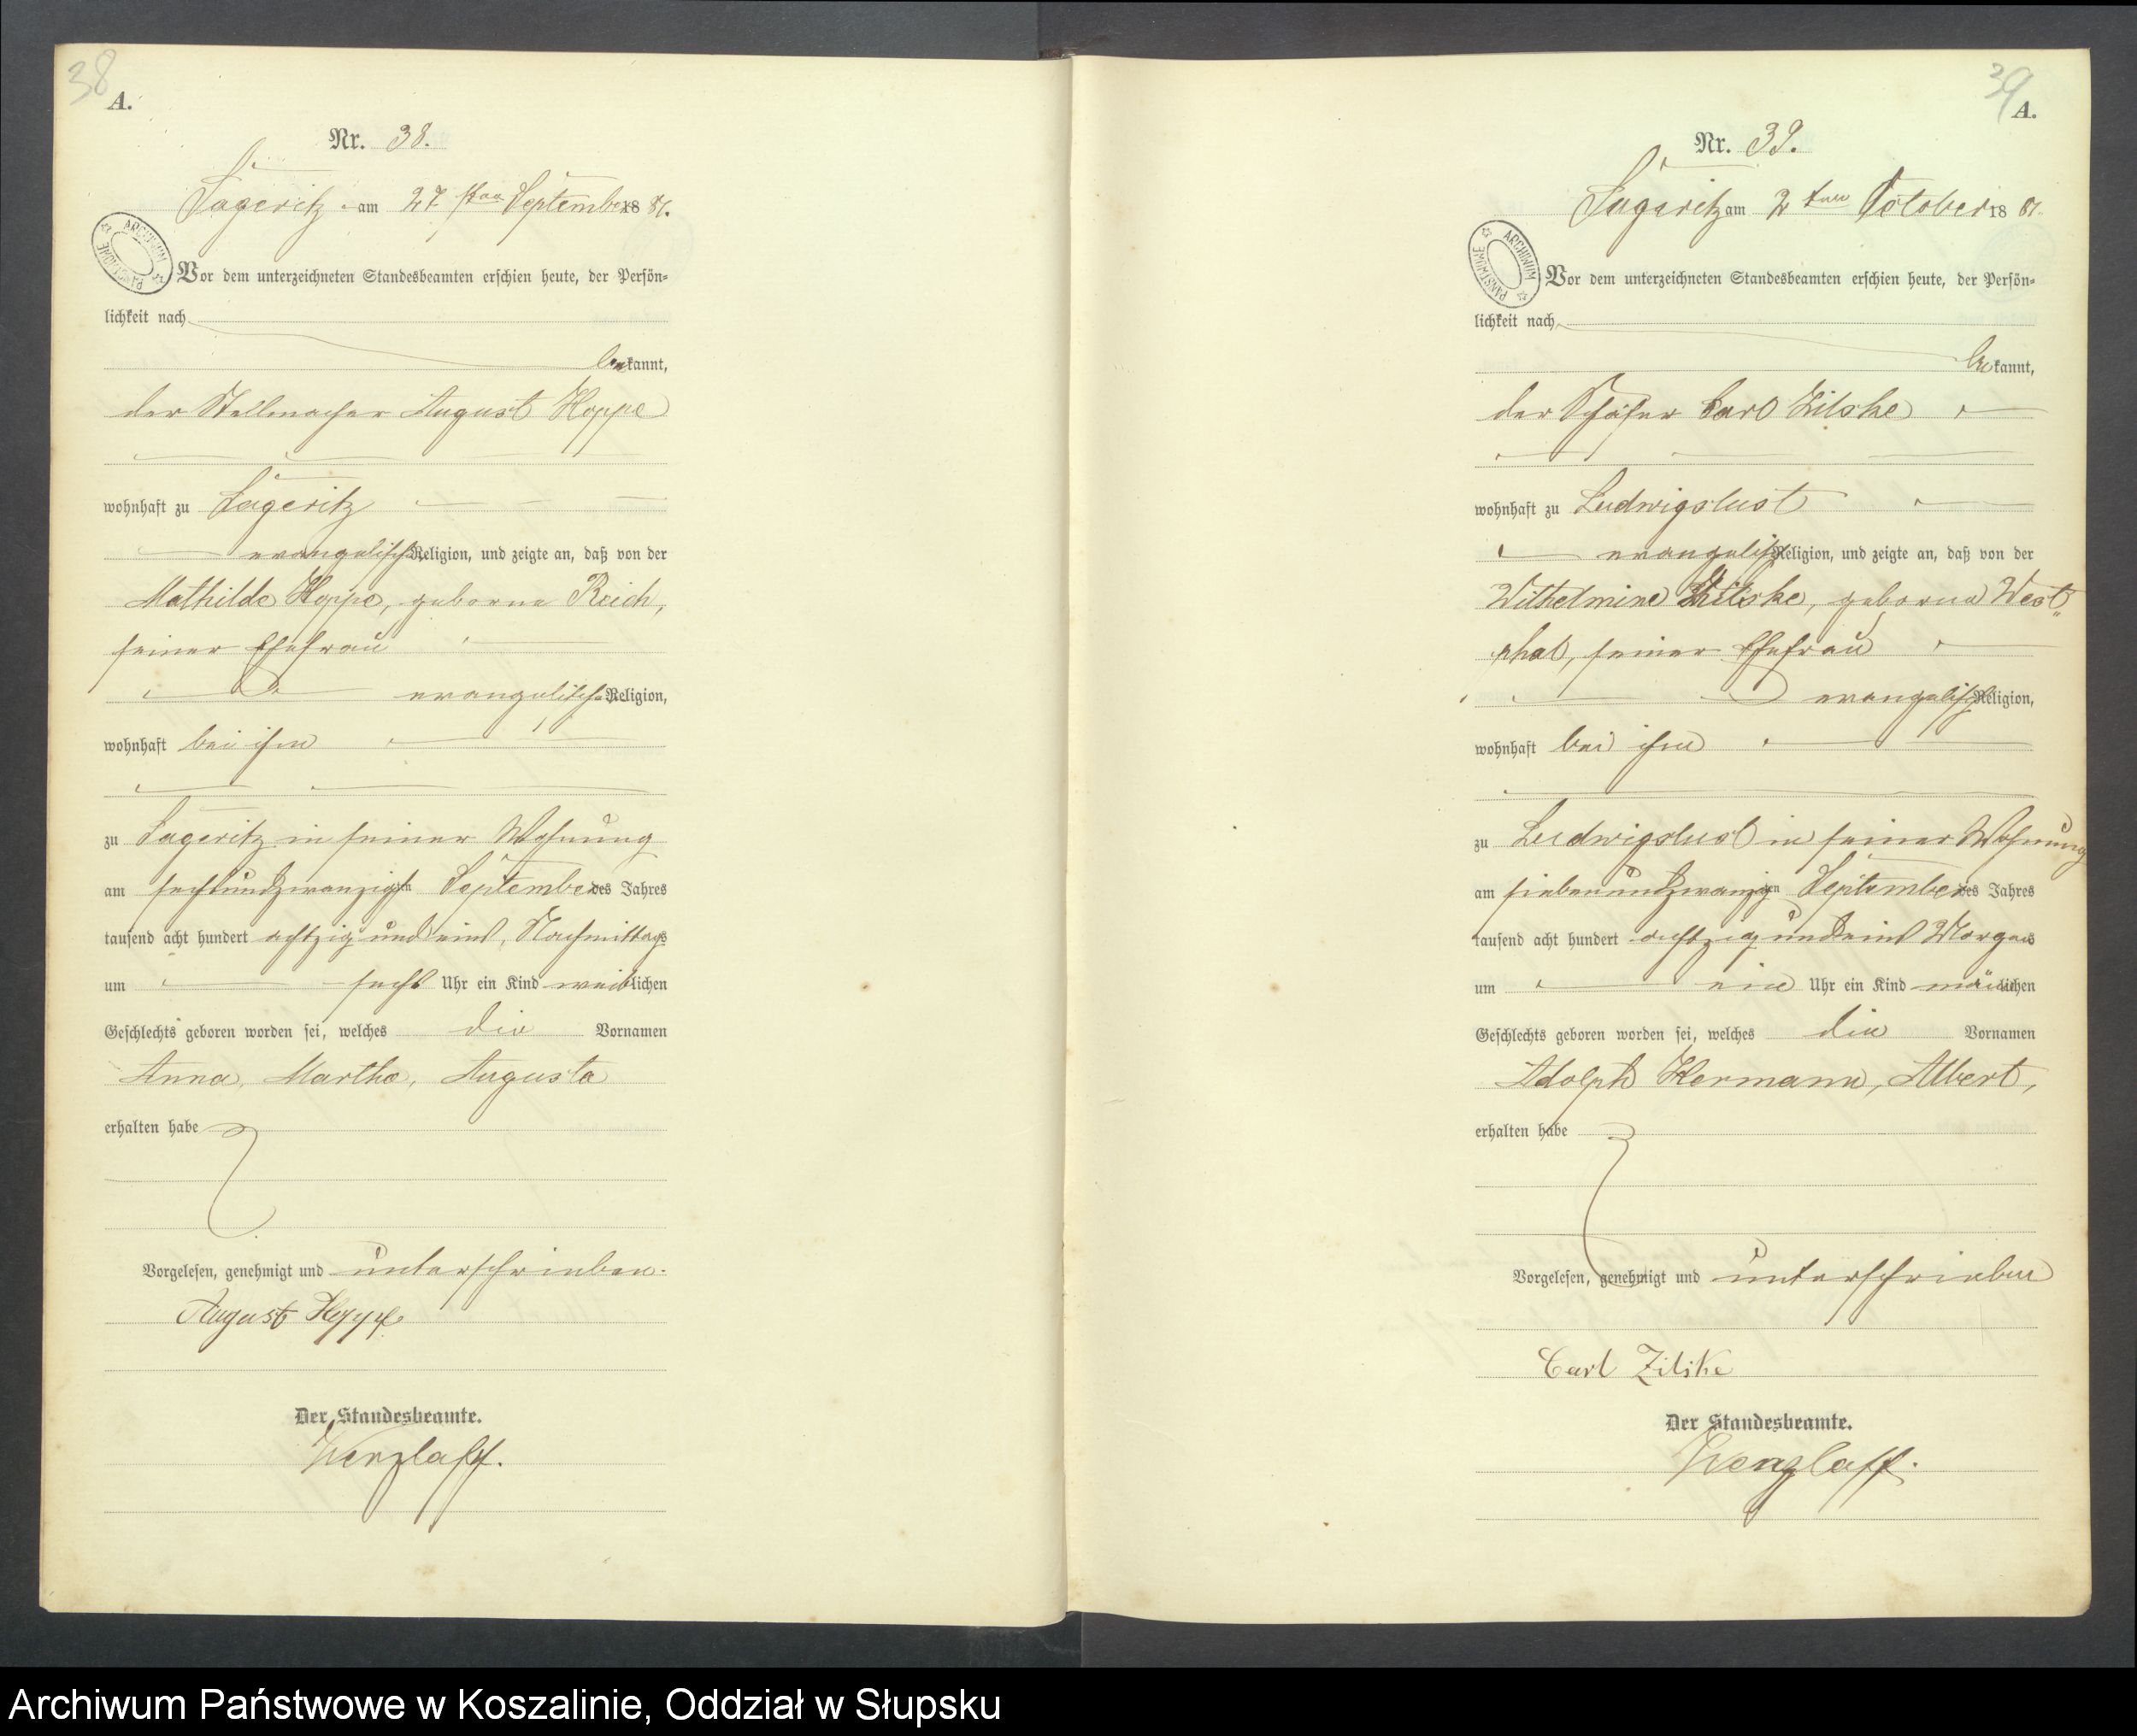 38
A.
Nr. 38.
Sageritz am 27 sten September 1881.
ARCHIWUM PAŃSTWOWE
Vor dem unterzeichneten Standesbeamten erschien heute, der Persön=
lichkeit nach
bekannt,
der Stellmacher August Hoppe
wohnhaft zu Sageritz
evangelischer Religion, und zeigte an, daß von der
Mathilde Hoppe, geborne Reich,
seiner Ehefrau
evangelischer Religion,
wohnhaft bei ihm
zu Sageritz in seiner Wohnung
am sechsundzwanzigsten September des Jahres
tausend acht hundert achtzig und eins, Nachmittags
um sechs Uhr ein Kind weiblichen
Geschlechts geboren worden sei, welches die Vornamen
Anna, Martha, Augusta
erhalten habe
Vorgelesen, genehmigt und unterschrieben.
August Hoppe
Der Standesbeamte.
39
A.
Nr. 39.
Sageritz am 2 ten October 1881.
ARCHIWUM PAŃSTWOWE
Vor dem unterzeichneten Standesbeamten erschien heute, der Persön=
lichkeit nach
bekannt,
der Schäfer Carl Zilske
wohnhaft zu Ludwigslust
evangelischer Religion, und zeigte an, daß von der
Wilhelmine Zilske, geborne West=
phal, seiner Ehefrau
evangelischer Religion,
wohnhaft bei ihm
zu Ludwigslust in seiner Wohnung
am siebenundzwanzigsten September des Jahres
tausend acht hundert achtzig und eins Morgens
um ein Uhr ein Kind männlichen
Geschlechts geboren worden sei, welches die Vornamen
Adolph Hermann, Albert,
erhalten habe
Vorgelesen, genehmigt und unterschrieben
Carl Zilske
Der Standesbeamte.
Archiwum Państwowe w Koszalinie, Oddział w Słupsku